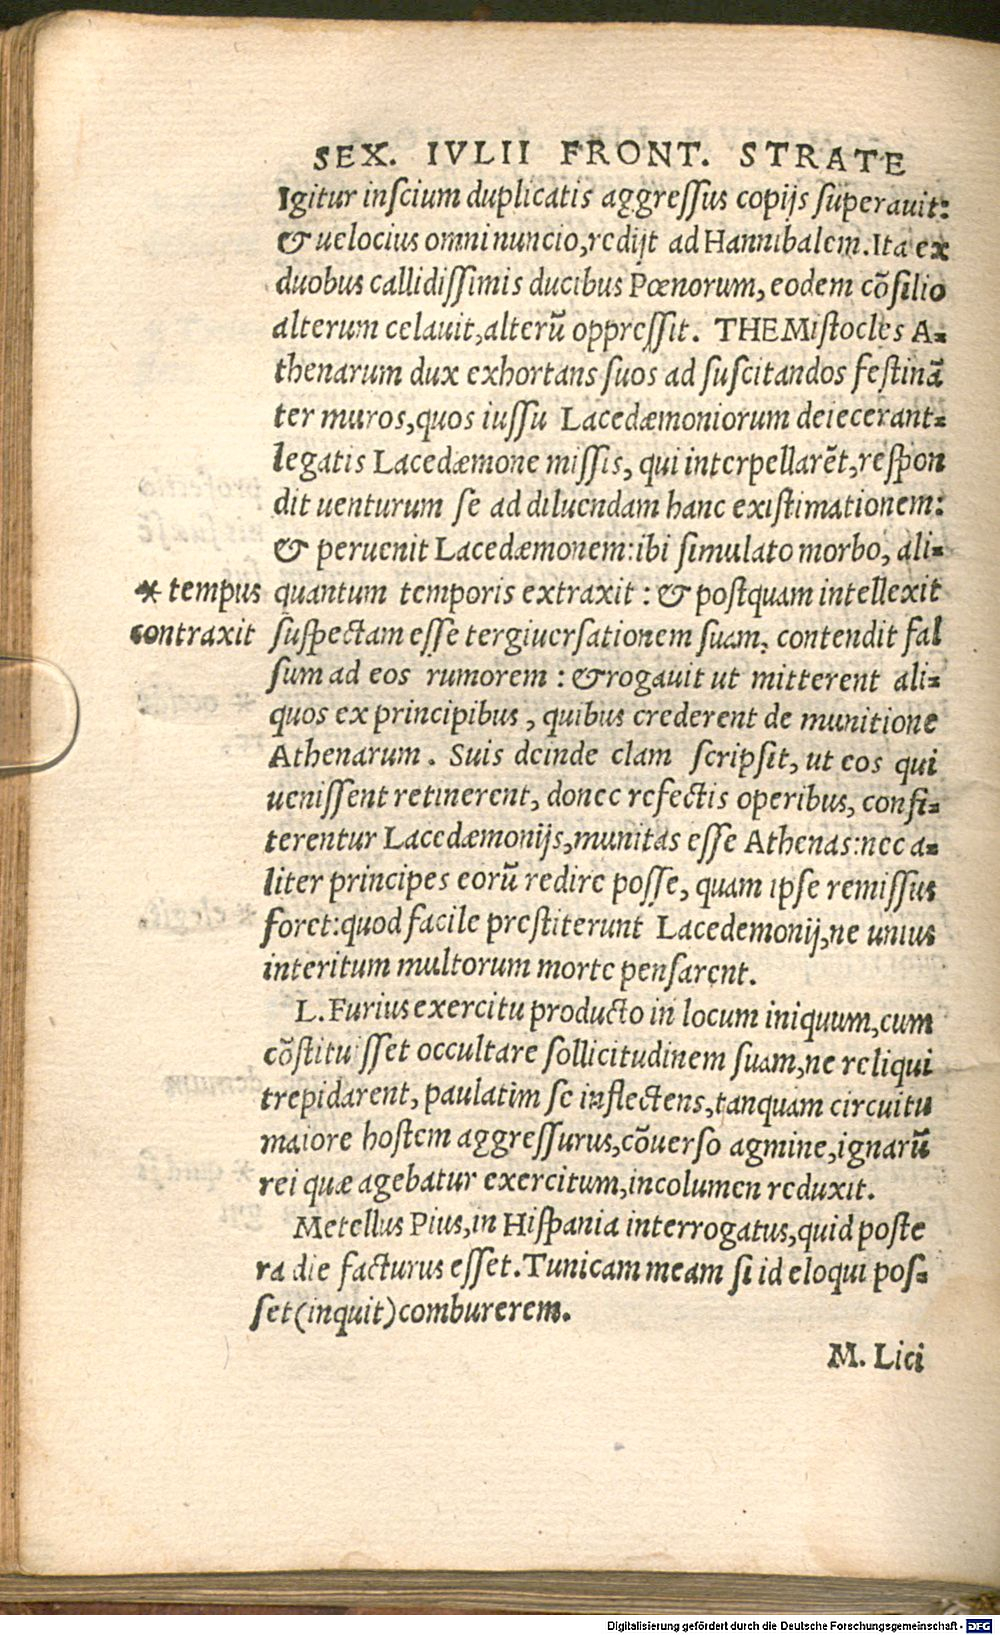 SEX. IVLII FRONT. STRATE
Igitur inscium duplicatis aggressus copijs superauit:
& uelocius omni nuncio, redijt ad Hannibalem. Ita ex
duobus callidissimis ducibus Pœnorum, eodem cõsilio
alterum celauit, alterũ oppressit. THEMistocles A-
thenarum dux exhortans suos ad suscitandos festinã
ter muros, quos iussu Lacedæmoniorum deiecerant-
legatis Lacedæmone missis, qui interpellarẽt, respon
dit uenturum se ad diluendam hanc existimationem:
& peruenit Lacedæmonem: ibi simulato morbo, ali-
* tempus quantum temporis extraxit: & postquam intellexit
contraxit suspectam esse tergiuersationem suam, contendit fal
sum ad eos rumorem: & rogauit ut mitterent ali-
quos ex principibus, quibus crederent de munitione
Athenarum. Suis deinde clam scripsit, ut eos qui
uenissent retinerent, donec refectis operibus, confi-
terentur Lacedæmonijs, munitas esse Athenas: nec a-
liter principes eorũ redire posse, quam ipse remissus
foret: quod facile prestiterunt Lacedemonij, ne unius
interitum multorum morte pensarent.
L. Furius exercitu producto in locum iniquum, cum
cõstituisset occultare sollicitudinem suam, ne reliqui
trepidarent, paulatim se inflectens, tanquam circuitu
maiore hostem aggressurus, cõuerso agmine, ignarũ
rei quæ agebatur exercitum, incolumen reduxit.
Metellus Pius, in Hispania interrogatus, quid poste
ra die facturus esset. Tunicam meam si id eloqui pos-
set (inquit) comburerem.
M. Lici
Digitalisierung gefördert durch die Deutsche Forschungsgemeinschaft - DFG